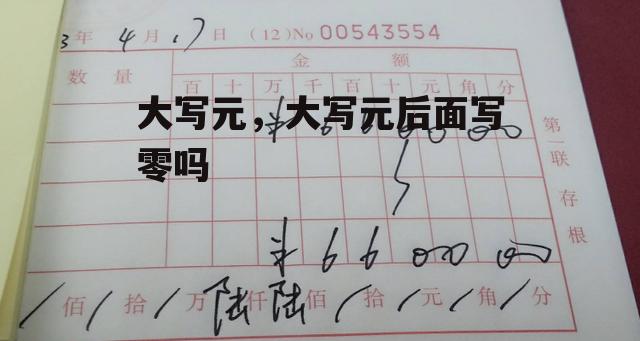 3年 4月 17日 (12)No 00543554
数量 金额
百 十 万 千 百 十 元 角 分
大写元，大写元后面写
零吗
第一联 存根
¥ 6 6 0 0 0 0
/佰/拾/万陆仟陆佰/拾/元/角/分